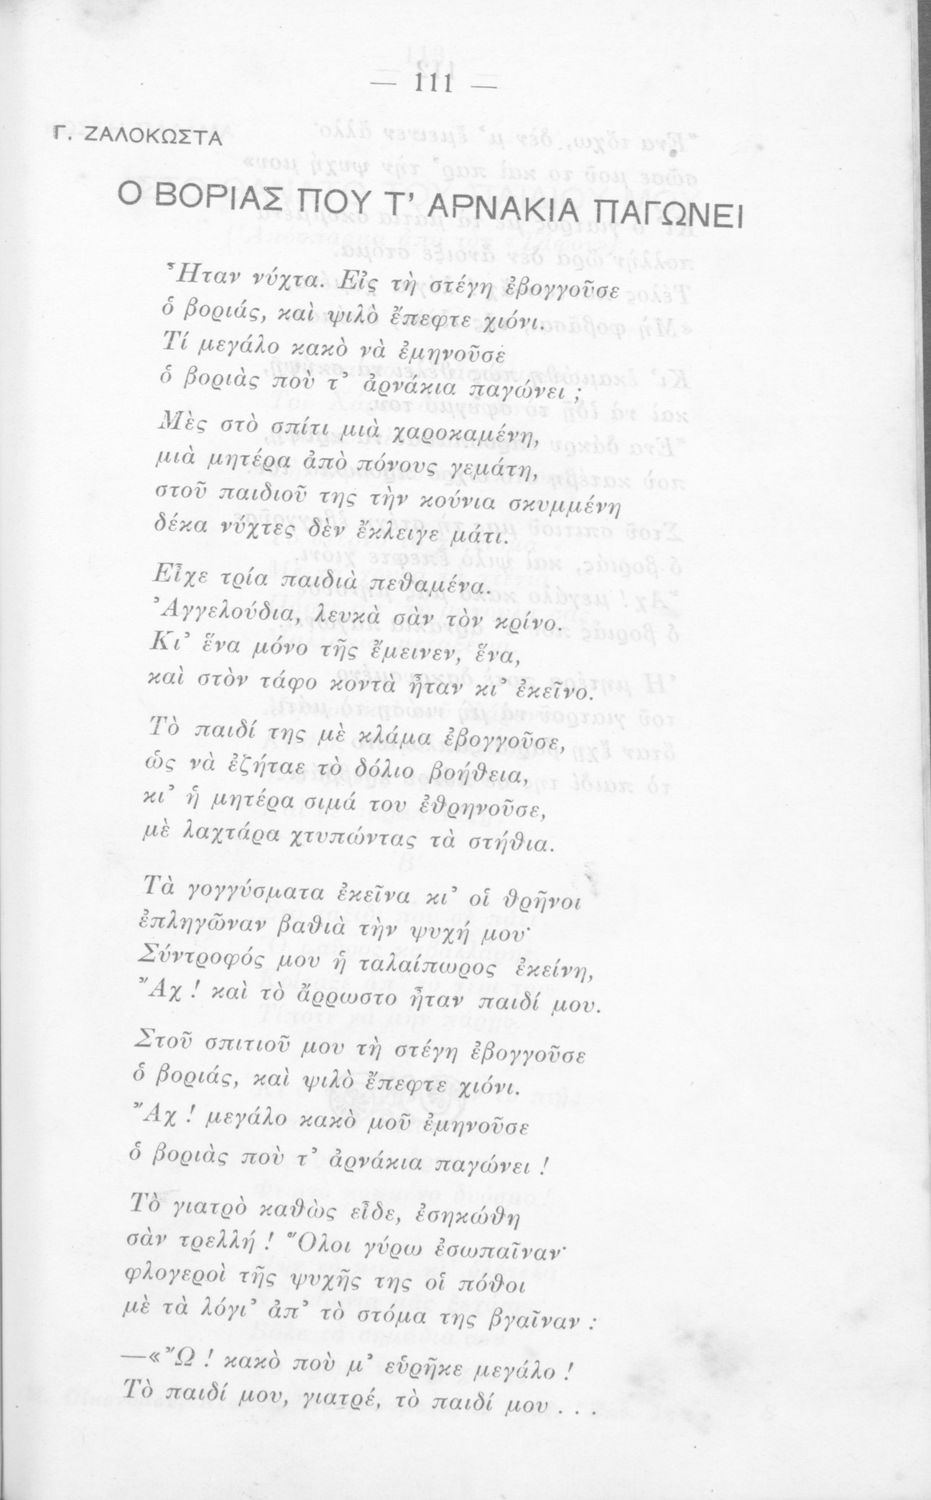 — 111 —
Γ. ΖΑΛΟΚΩΣΤΑ
Ο ΒΟΡΙΑΣ ΠΟΥ Τ' ΑΡΝΑΚΙΑ ΠΑΓΩΝΕΙ
Ἦταν νύχτα. Εἰς τὴ στέγη ἐβογγοῦσε
ὁ βοριάς, καὶ ψιλὸ ἔπεφτε χιόνι.
Τί μεγάλο κακὸ νὰ ἐμηνοῦσε
ὁ βοριὰς ποὺ τ' ἀρνάκια παγώνει ;
Μὲς στὸ σπίτι μιὰ χαροκαμένη,
μιὰ μητέρα ἀπὸ πόνους γεμάτη,
στοῦ παιδιοῦ της τὴν κούνια σκυμμένη
δέκα νύχτες δὲν ἔκλειγε μάτι.
Εἶχε τρία παιδιὰ πεθαμένα.
Ἀγγελούδια, λευκὰ σὰν τὸν κρίνο.
Κι' ἕνα μόνο τῆς ἔμεινεν, ἕνα,
καὶ στὸν τάφο κοντὰ ἦταν κι' ἐκεῖνο.
Τὸ παιδί της μὲ κλάμα ἐβογγοῦσε,
ὡς νὰ ἐζήταε τὸ δόλιο βοήθεια,
κι' ἡ μητέρα σιμά του ἐθρηνοῦσε,
μὲ λαχτάρα χτυπώντας τὰ στήθια.
Τὰ γογγύσματα ἐκεῖνα κι' οἱ θρῆνοι
ἐπληγῶναν βαθιὰ τὴν ψυχή μου·
Σύντροφός μου ἡ ταλαίπωρος ἐκείνη,
Ἄχ ! καὶ τὸ ἄρρωστο ἦταν παιδί μου.
Στοῦ σπιτιοῦ μου τὴ στέγη ἐβογγοῦσε
ὁ βοριάς, καὶ ψιλὸ ἔπεφτε χιόνι.
Ἄχ ! μεγάλο κακὸ μοῦ ἐμηνοῦσε
ὁ βοριὰς ποὺ τ' ἀρνάκια παγώνει !
Τὸ γιατρὸ καθὼς εἶδε, ἐσηκώθη
σὰν τρελλή ! Ὅλοι γύρω ἐσωπαῖναν·
φλογεροὶ τῆς ψυχῆς της οἱ πόθοι
μὲ τὰ λόγι' ἀπ' τὸ στόμα της βγαῖναν :
—«Ὢ ! κακὸ ποὺ μ' εὑρῆκε μεγάλο !
Τὸ παιδί μου, γιατρέ, τὸ παιδί μου . . .